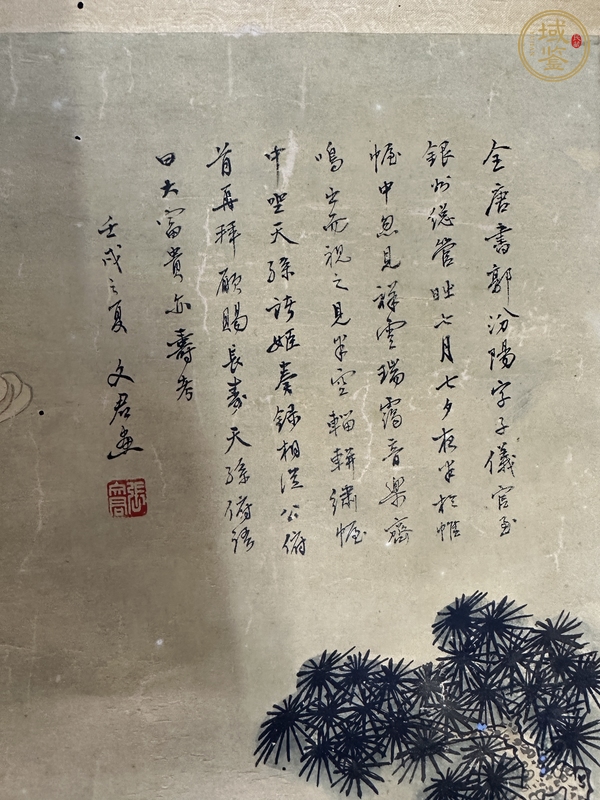 全唐書郭汾陽字子儀官至
銀州總管時七月七夕夜半於帷
幄中忽見祥雲瑞靄音樂齊
鳴出而視之見半空輜軿繡幄
中坐天孫諸姬奏 相從公俯
首再拜願賜長壽天孫俯語
曰大富貴亦壽考
壬戌之夏 文君畫
域鑒